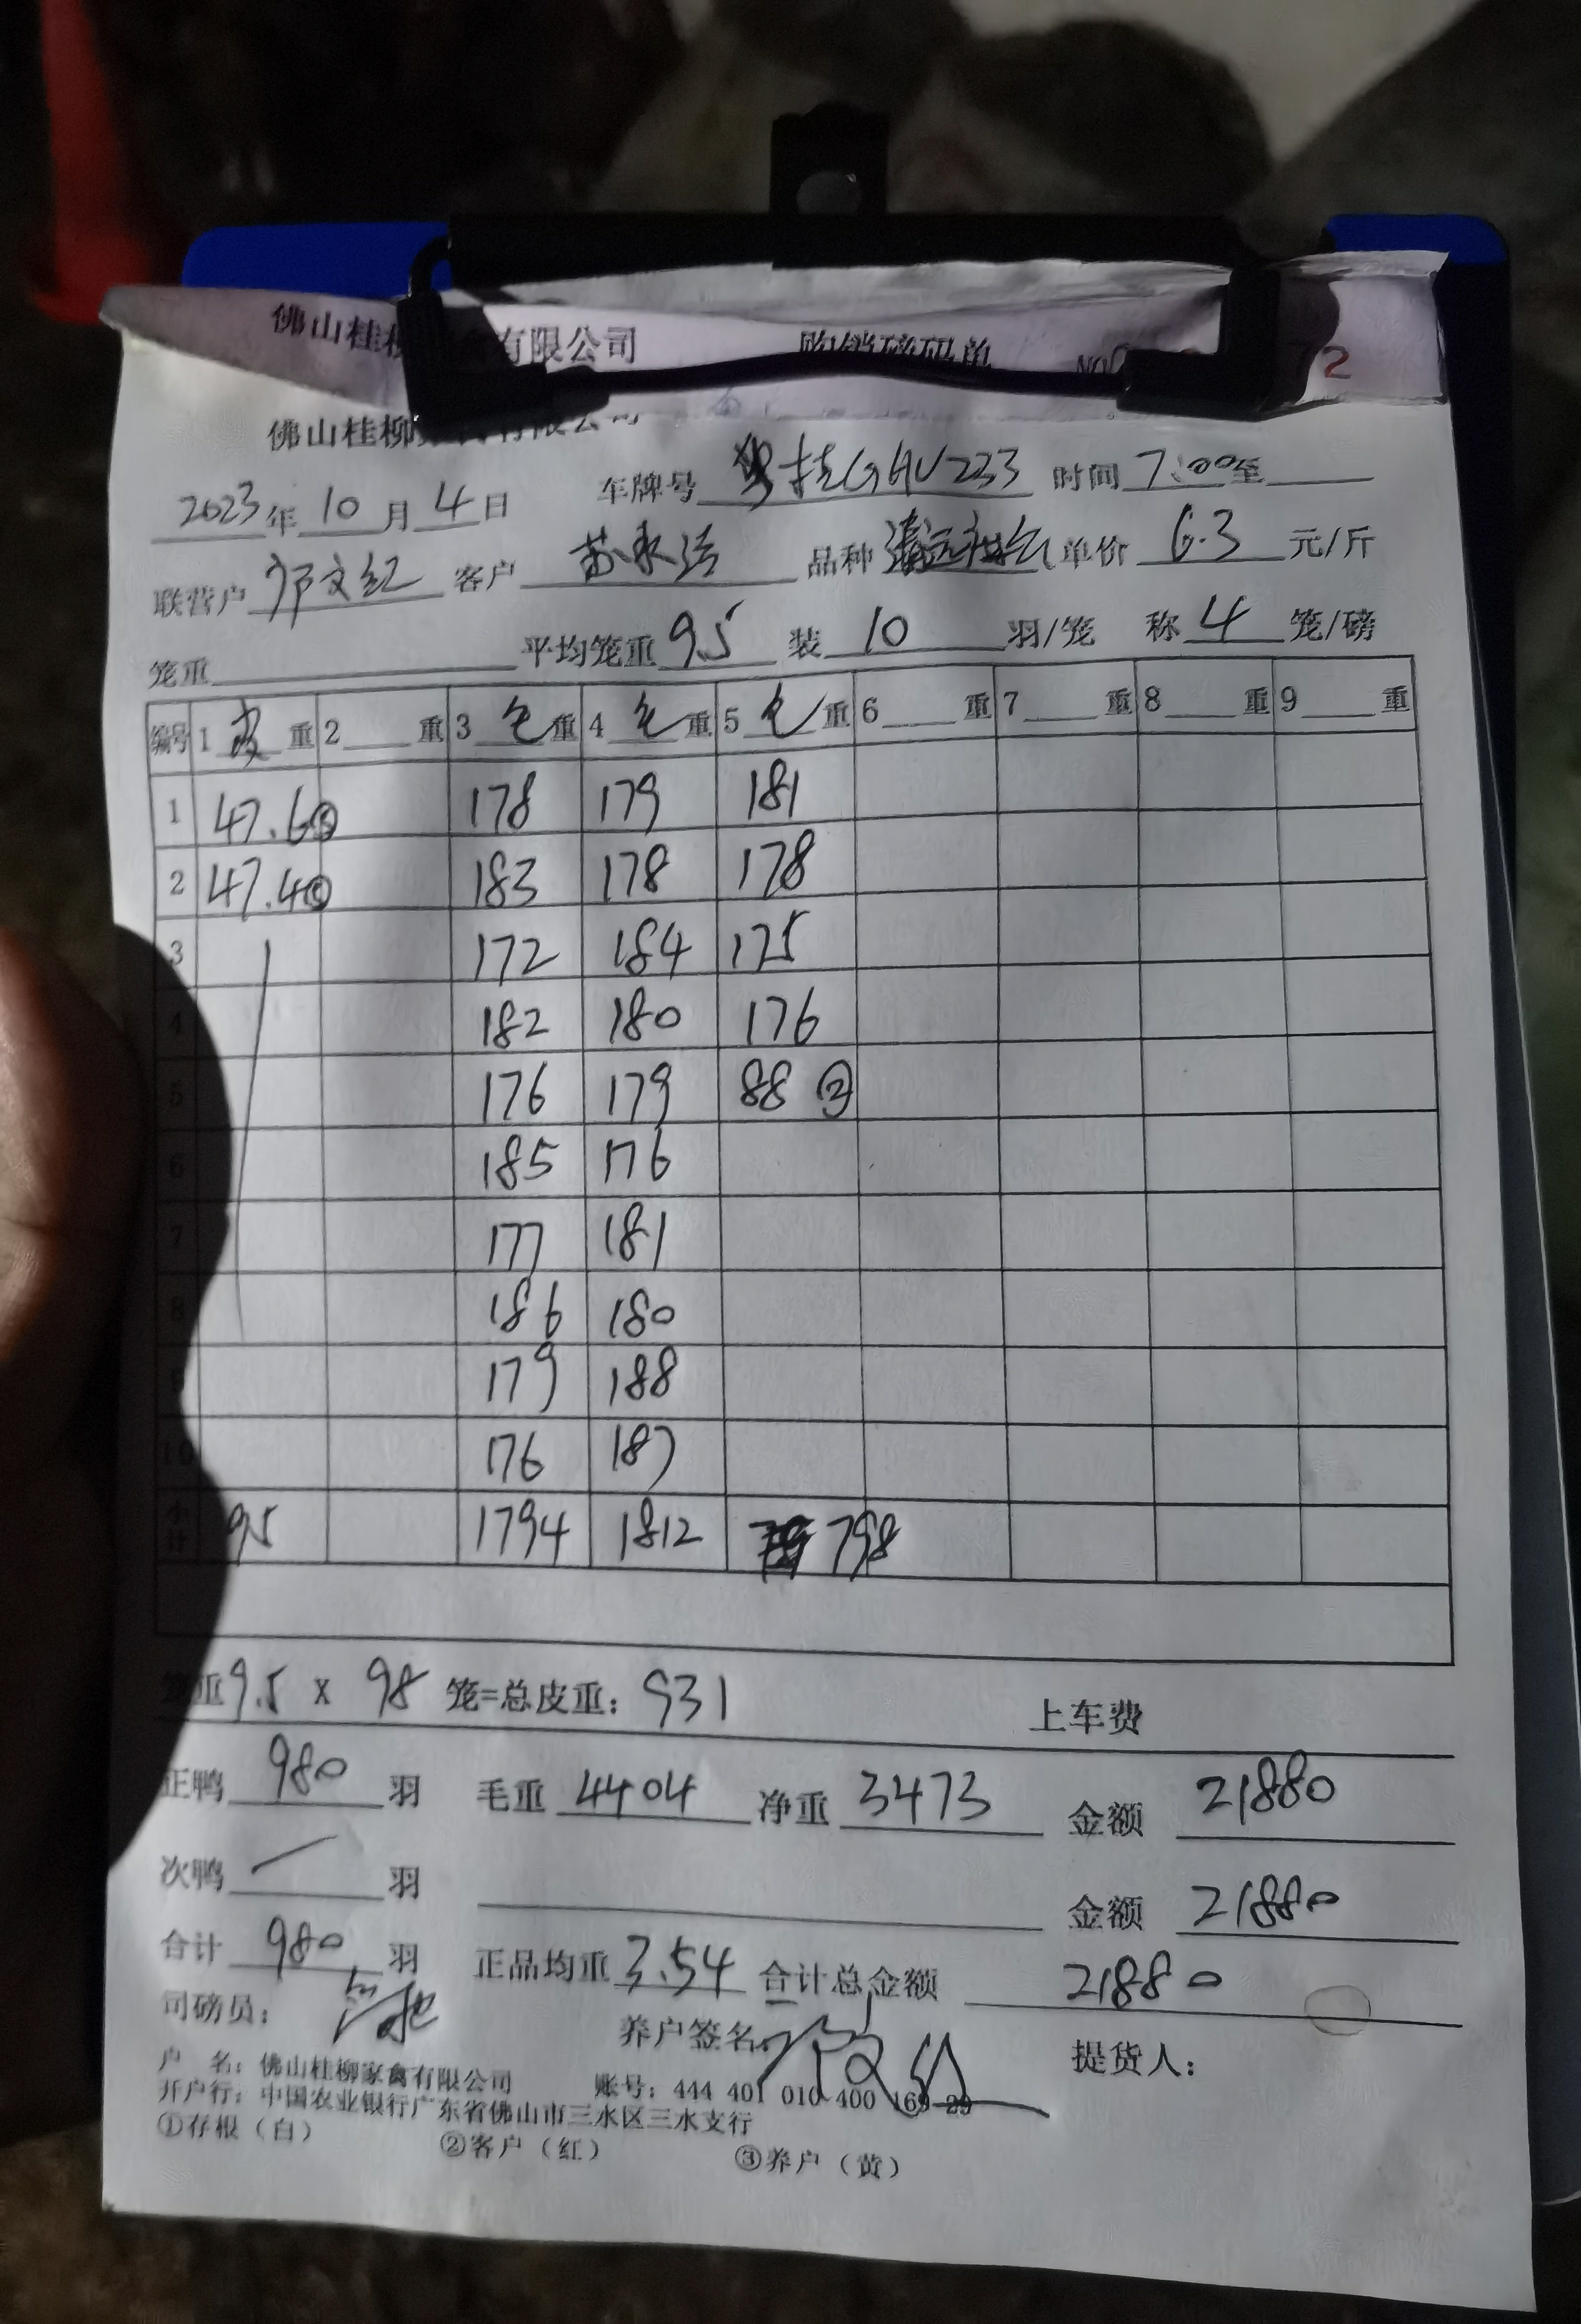 佛山桂柳 有限公司 购销磅码单 NO 2
佛山桂柳 有限公司
2023年10月4日 车牌号 粤桂GHU233 时间 7:00至
联营户 邝文纪 客户 苏永法 品种 单价 6.3 元/斤
笼重 平均笼重 9.5 装 10 羽/笼 称 4 笼/磅
编号 1 皮 重 2 重 3 毛 重 4 毛 重 5 毛 重 6 重 7 重 8 重 9 重
1 47.6⑤ 178 179 181
2 47.4⑤ 183 178 178
3 172 184 175
4 182 180 176
5 176 179 88 ②
6 185 176
7 177 181
8 186 180
9 179 188
10 176 187
小计 95 1794 1812 798
笼重 9.5 x 98 笼=总皮重: 931 上车费
正鸭 980 羽 毛重 4404 净重 3473 金额 21880
次鸭 / 羽 金额 21880
合计 980 羽 正品均重 3.54 合计总金额 21880
司磅员: 养户签名: 提货人:
户 名: 佛山桂柳家禽有限公司 账号: 444 401 010 400 169 29
开户行: 中国农业银行广东省佛山市三水区三水支行
①存根(白) ②客户(红) ③养户(黄)